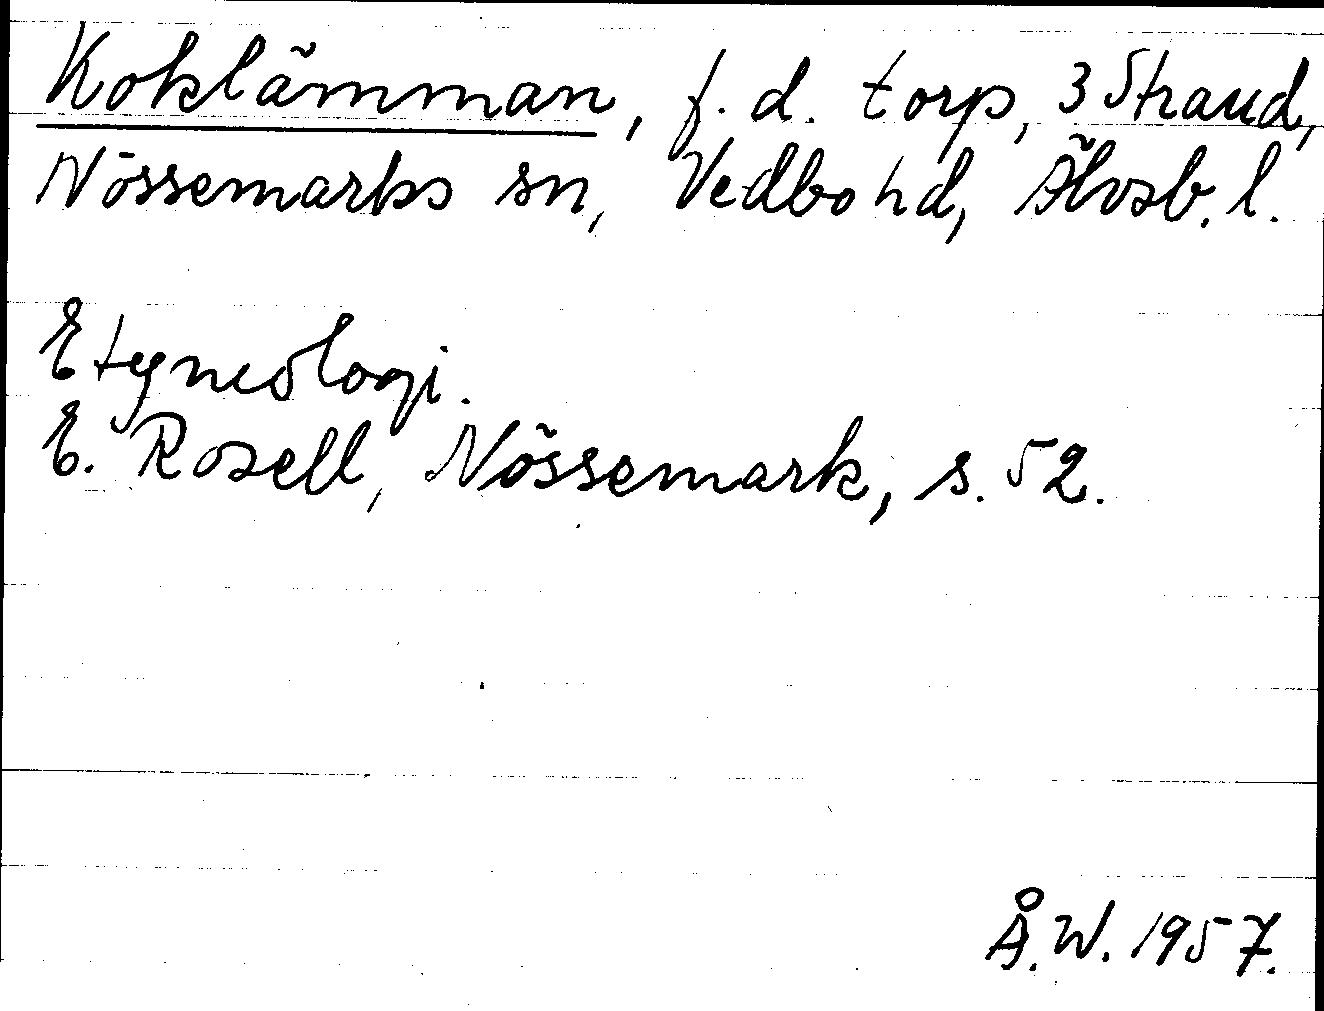 Koklämman, f. d. torp, 3 Strand,
Nössemarks sn, Vedbo hd, Älvsb. l.
Etymologi.
E. Rosell, Nössemark, s. 52.
Å. W. 1957.